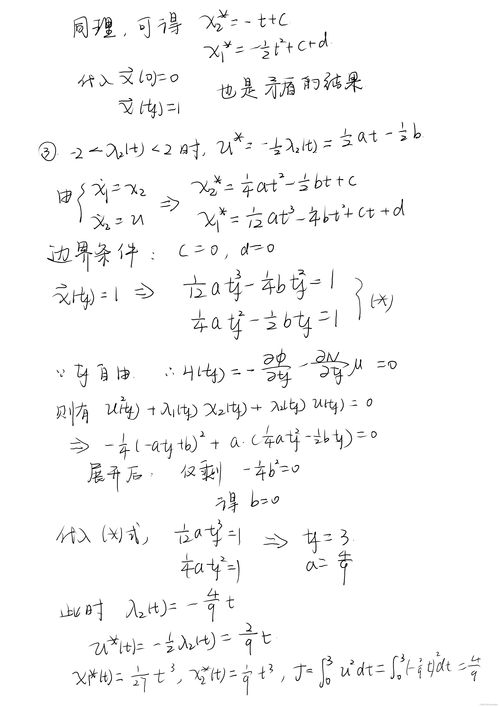 同理，可得 x₂* = -t+c
x₁* = -½t²+c+d
代入 x⃗(0)=0
x⃗(tf)=1 也是矛盾的结果
③ -2<λ₂(t)<2时, u* = -½λ₂(t) = ½at - ½b
由 { ẋ₁=x₂ ⇒ x₂* = ¼at² - ½bt + c
ẋ₂=u x₁* = 1/12 at³ - ¼bt² + ct + d
边界条件: c=0, d=0
x⃗(tf)=1 ⇒ 1/12 a tf³ - ¼b tf² = 1
¼a tf² - ½b tf = 1 } (*)
∵ tf 自由 ∴ H(tf) = - ∂Φ/∂tf - ∂N/∂tf μ = 0
则有 u²(tf) + λ₁(tf) x₂(tf) + λ₂(tf) u(tf) = 0
⇒ -¼(-atf+b)² + a·(¼a tf² - ½b tf) = 0
展开后: 仅剩 -¼b²=0
得 b=0
代入(*)式, 1/12 a tf³=1 ⇒ tf=3
¼a tf²=1 a=4/9
此时 λ₂(t) = -4/9 t
u*(t) = -½λ₂(t) = 2/9 t
x₁*(t) = 1/27 t³, x₂*(t) = 1/9 t³, J=∫₀³ u²dt = ∫₀³(-2/9 t)²dt = 4/9